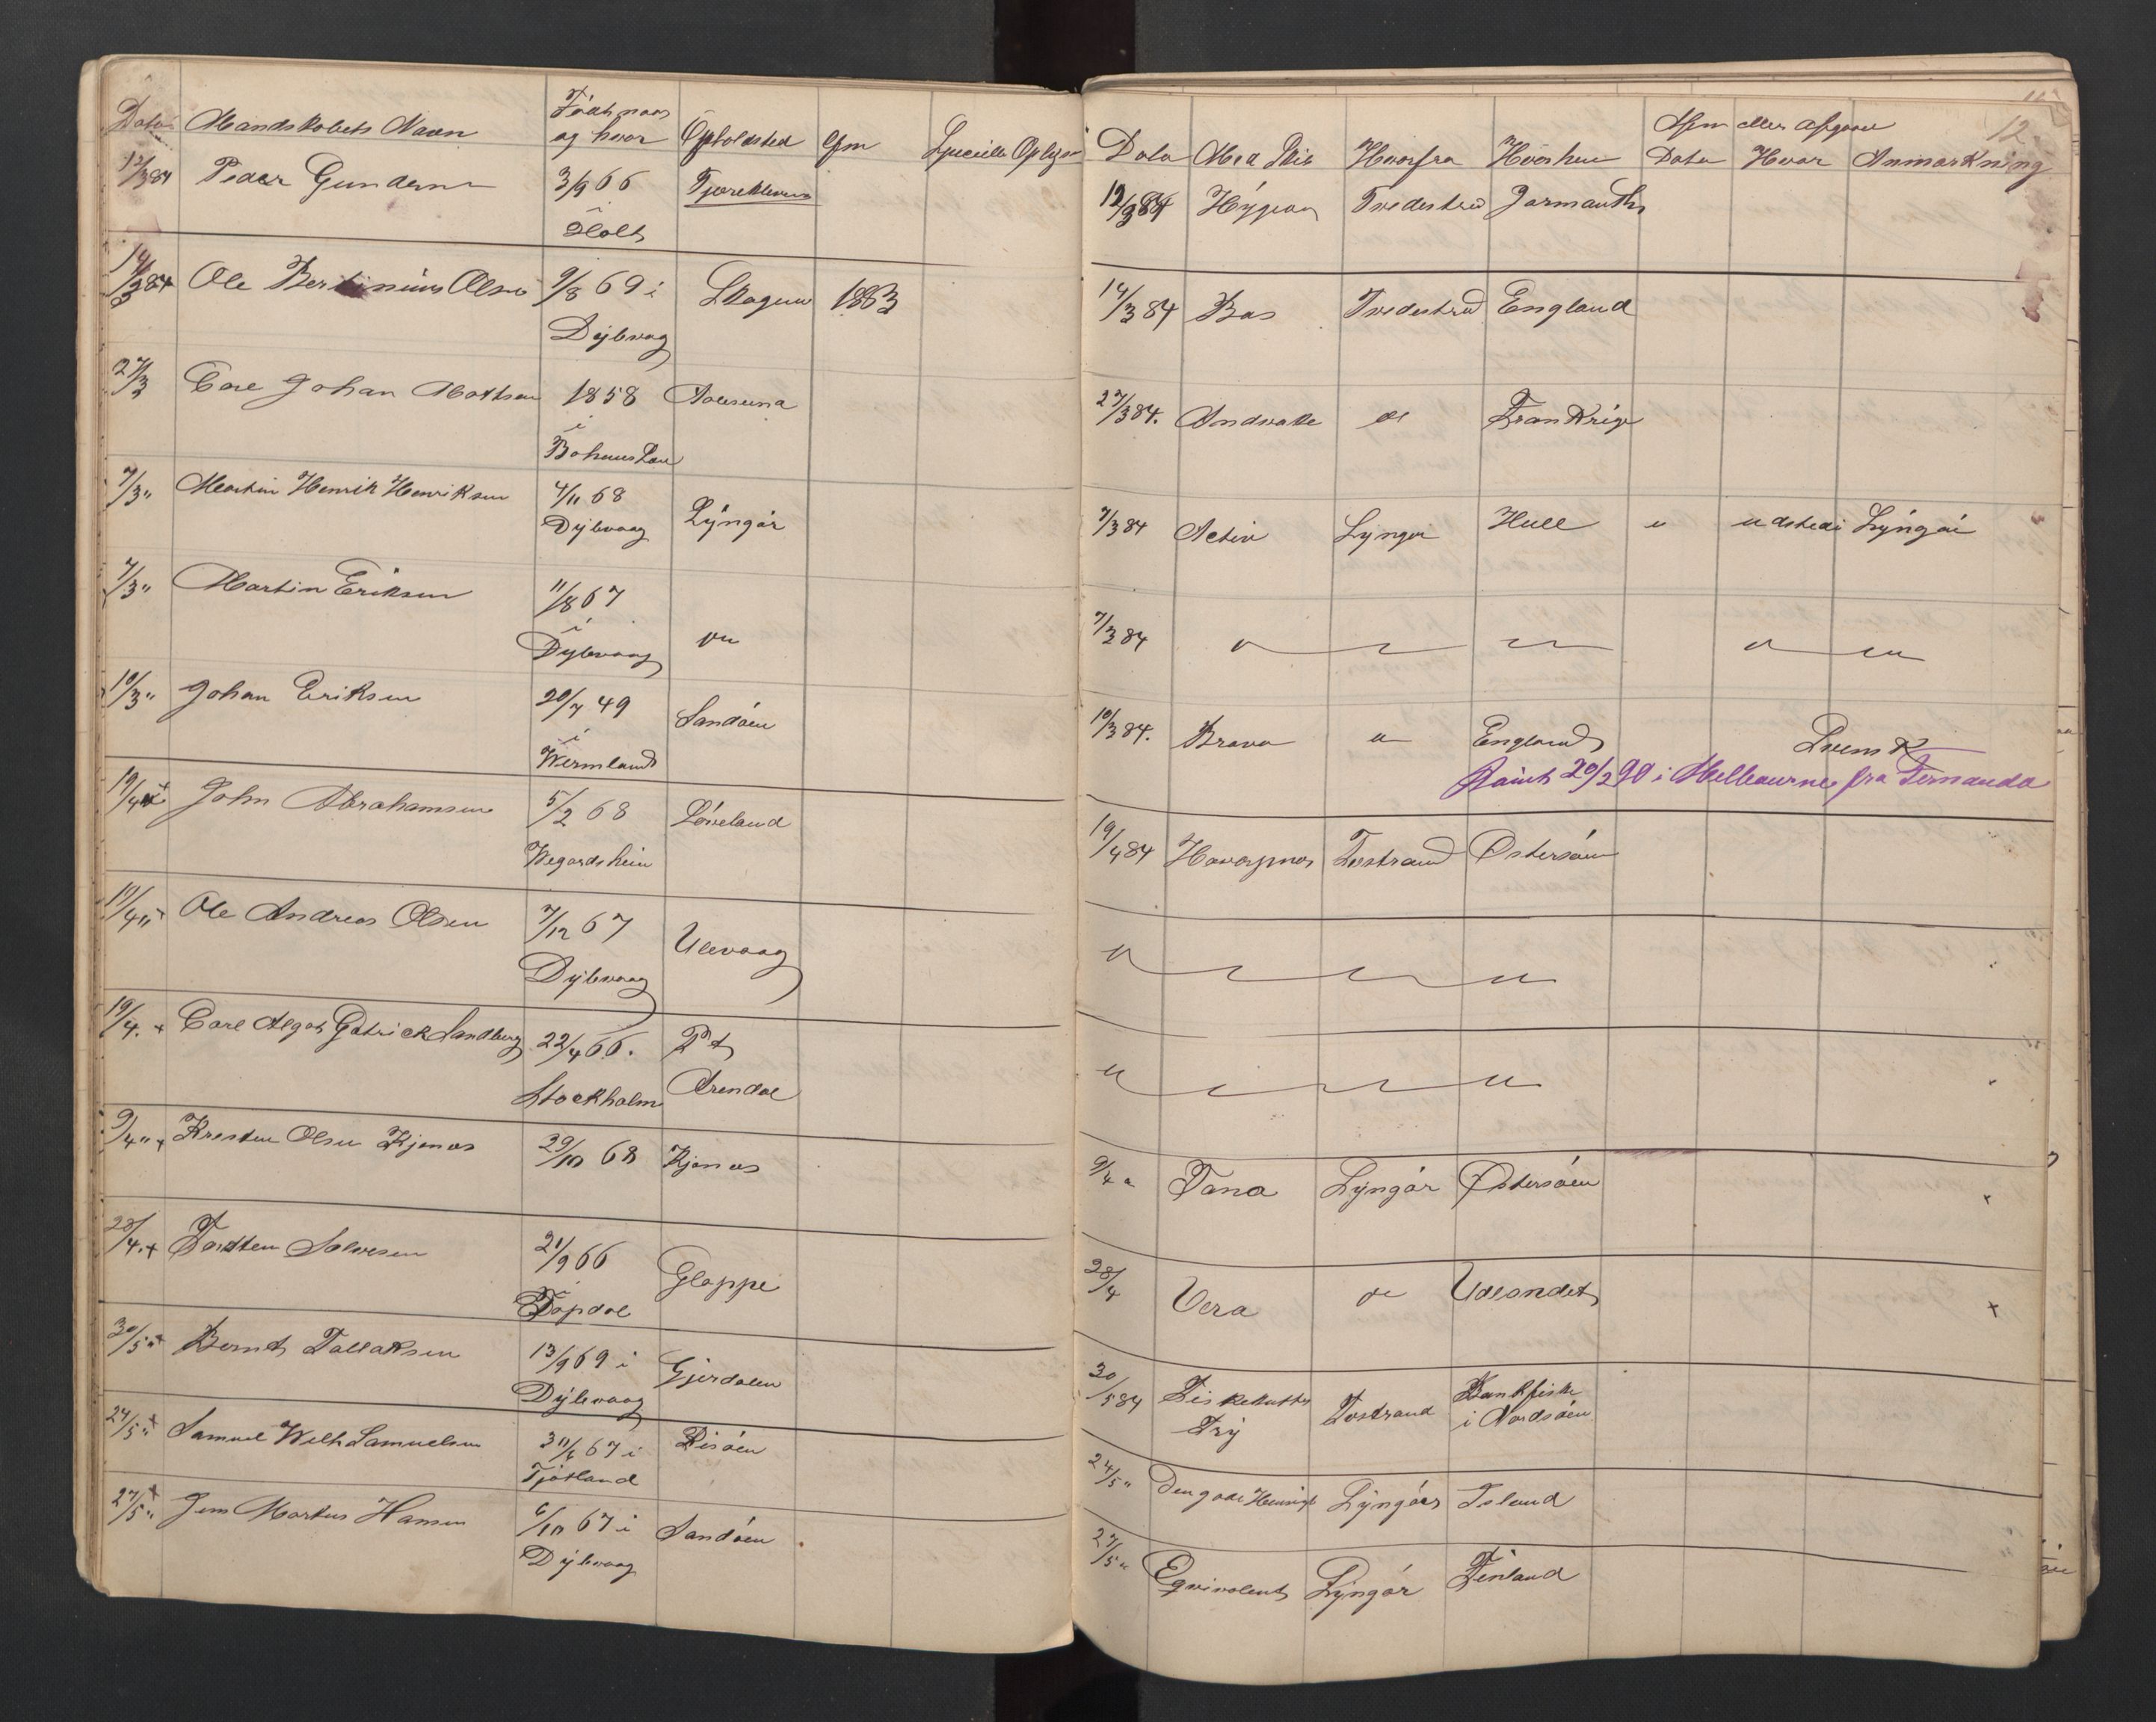 Dato Mandskabets Navn Født naar og hvor Opholdsted Gfm Specielle Oplysn
12/3 84 Peder Gundersen 3/9 66 i Holt
14/3 84 Ole Bertinius Olsen 9/8 69 i Dybvaag Skagen 1883
27/3 Carl Johan Mathsen 1858 i Bohuus Län
7/3 " Martin Henrik Henriksen 4/11 68 Dybvaag Lyngør
7/3 " Martin Eriksen 11/8 67 i Dybvaag "
10/3 " Johan Eriksen 20/7 49 i Wermland Sandøen
19/4 + John Abrahamsen 5/2 68 Wegardsheim Løveland
19/4 " + Ole Andreas Olsen 7/12 67 Dybvaag Ulevaag
19/4. + Carl Algot Sandberg 22/4 66. Stockholm Pt Arendal
9/4 " + Kresten Olsen Kjenas 29/10 68 Kjenas
28/4. + Torsten Salvesen 21/9 66 i Topdal Gloppe
30/5 " + Bernt Tallaksen 13/9 69 i Dybvaag Gjerdalen
24/5 " + Samuel Wilh Samuelsen 67 i Tjøtland Risøen
27/5 " + Jens Martius Hansen 6/10 67 i Dybvaag Sandøen
12
Afm eller Afgaaet
Dato Med Skib Hvorfra Hvorhen Dato Hvor Anmærkning
12/3 84 Hygea Tvedestrd Jarmauth
14/3 84 Bas Tvedestrd England
27/3 84. Andvake " Frankrige
7/3 84 Activ Lyngør Hull " udsted i Lyngør
7/3 84 " " " " "
10/3 84. Bravo " England Svensk
Rømt 20/2 90 i Melbourne fra Fernanda
19/4 84 Havgynos Tvstrand Østersøen
" "
" "
9/4 " Tana Lyngør Østersøen
28/4 Vera " Udlandet +
30/5 84 Fiskekutter Fry Tvstrand Bankfiske i Nordsøen
24/5 " Den gode Hensigt Lyngør Island
27/5 " Eqvivalent Lyngør Finland